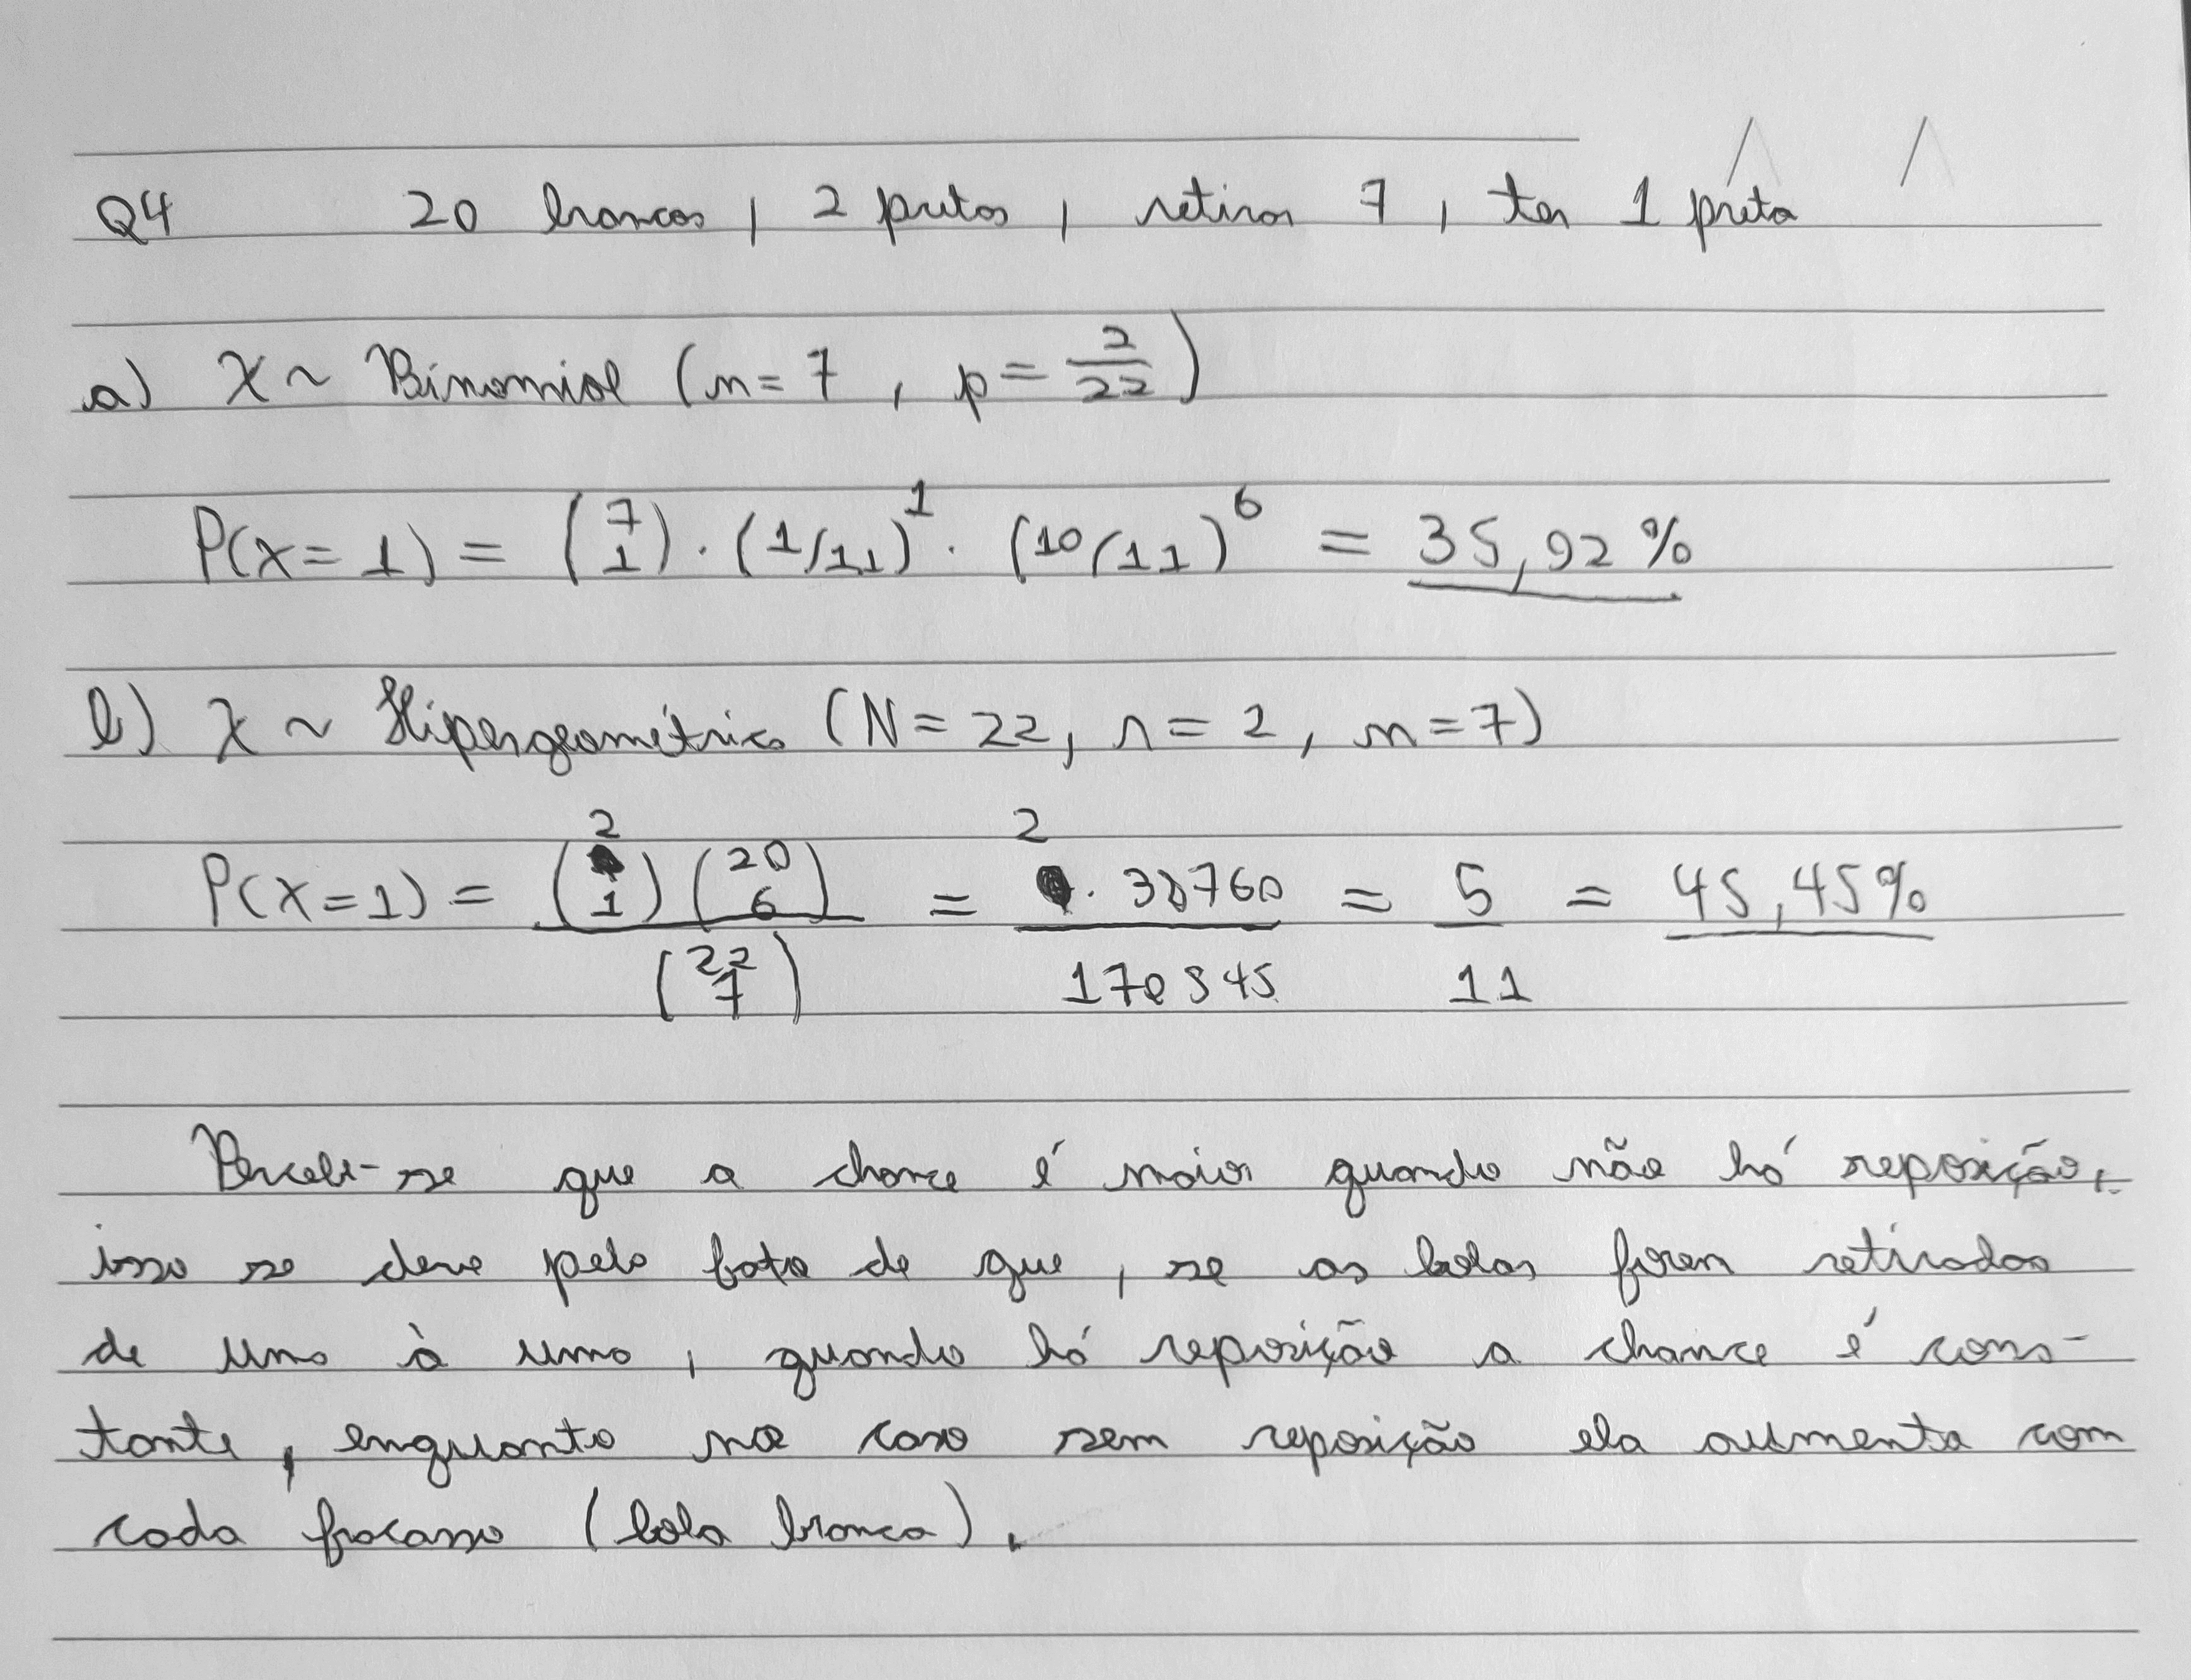 Q4 20 brancas, 2 pretas, retirar 7, ter 1 preta
a) X ~ Binomial (n = 7, p = 2/22)
P(X = 1) = (7 1) · (1/11)^1 · (10/11)^6 = 35,92%
b) X ~ Hipergeométrica (N = 22, r = 2, n = 7)
P(X = 1) = (2 1)(20 6) / (22 7) = 2 · 38760 / 170545 = 5/11 = 45,45%
Percebe-se que a chance é maior quando não há reposição,
isso se deve pelo fato de que, se as bolas forem retiradas
de uma à uma, quando há reposição a chance é cons-
tante, enquanto no caso sem reposição ela aumenta com
cada fracasso (bola branca).